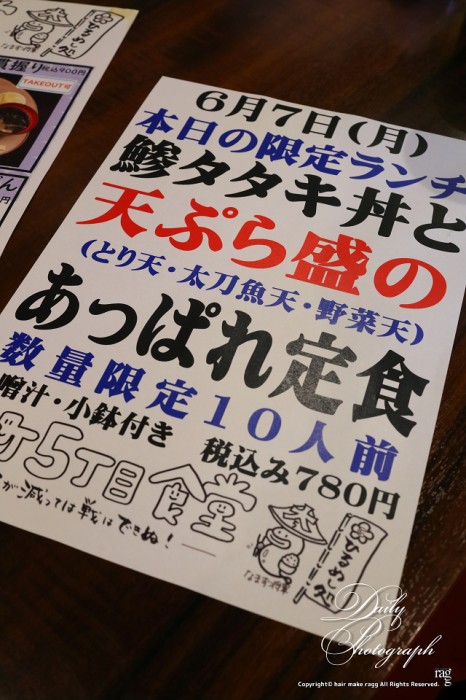 握り税込900円
TAKEOUT可
円
ひるめし処
なます将軍
6月7日(月)
本日の限定ランチ
鯵タタキ丼と
天ぷら盛の
(とり天・太刀魚天・野菜天)
あっぱれ定食
数量限定10人前
噌汁・小鉢付き 税込み780円
町5丁目食堂
が減っては戦はできぬ!
ひるめし処
なます将軍
Daily Photograph
ragg
Copyright© hair make ragg All Rights Reserved.